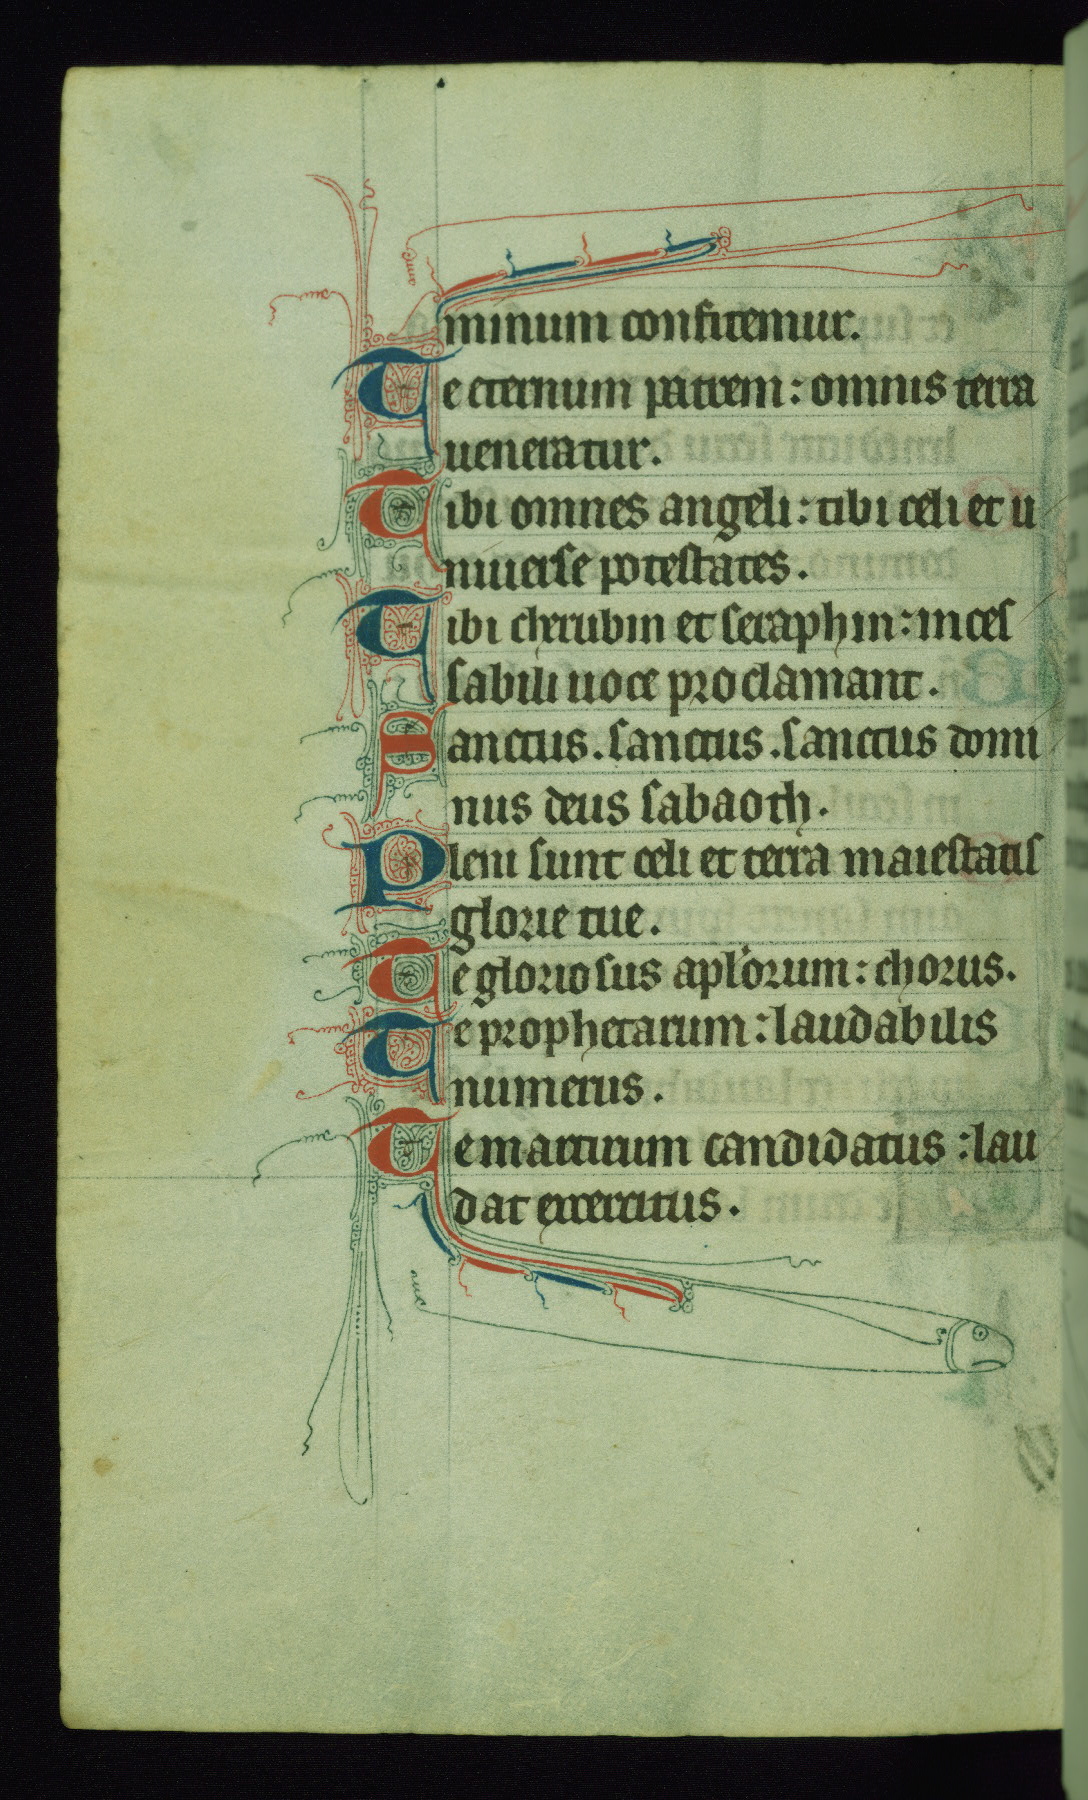 minum confitemur.
Te eternum patrem: omnis terra
ueneratur.
Tibi omnes angeli: tibi celi et u
niuerse potestates.
Tibi cherubin et seraphin: inces
sabili uoce proclamant.
Sanctus. sanctus. sanctus domi
nus deus sabaoth.
Pleni sunt celi et terra maiestatis
glorie tue.
Te gloriosus apl'orum: chorus.
Te prophetarum: laudabilis
numerus.
Te martirum candidatus: lau
dat exercitus.